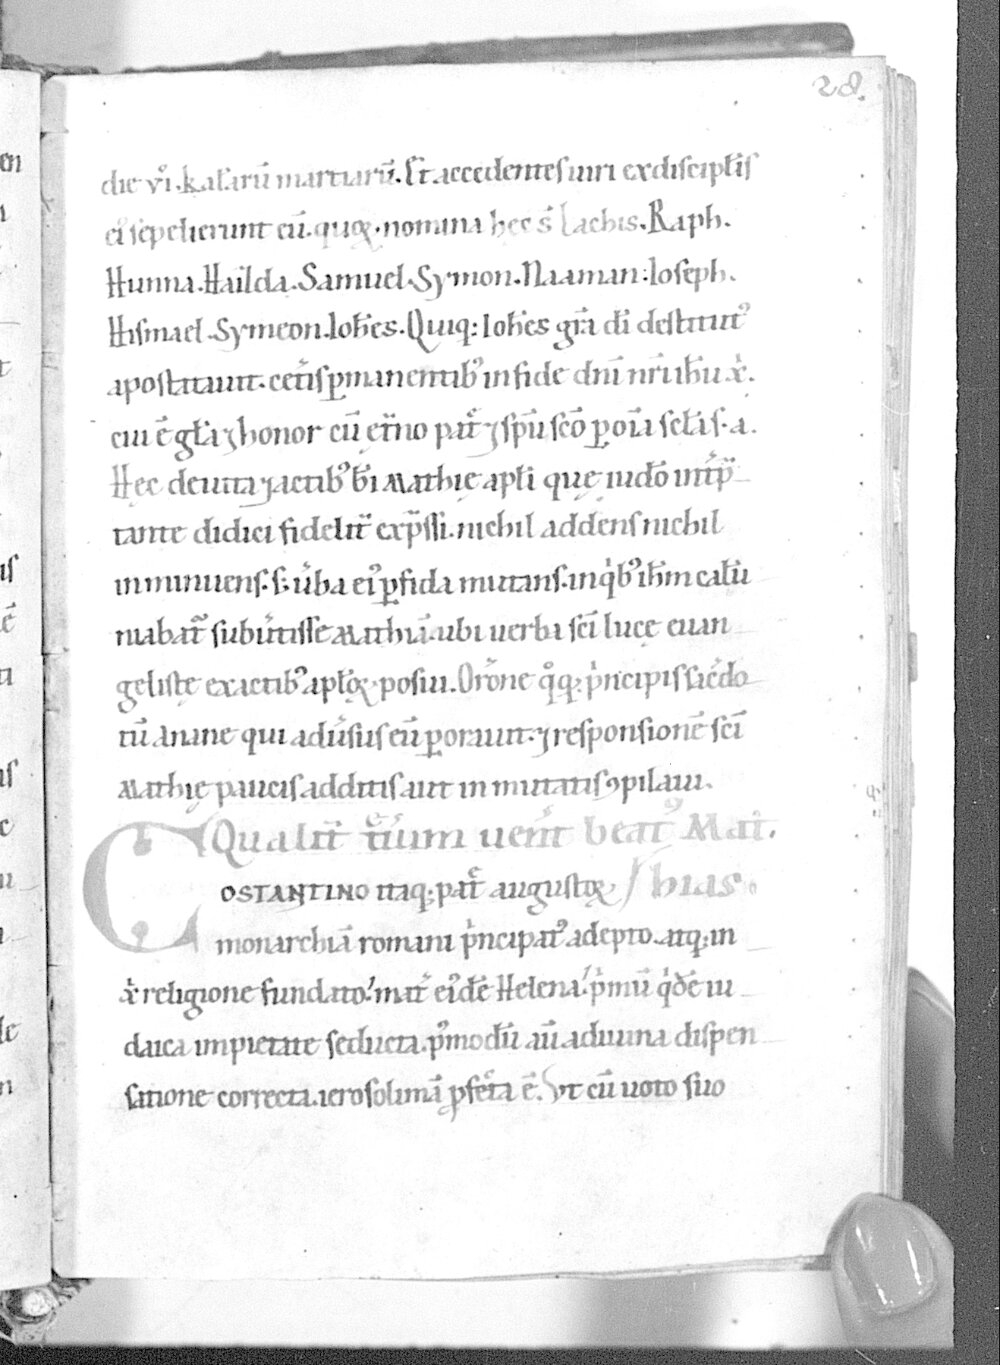 28.
die vi̊. kalarū martiarū. Et accedentes uiri ex discipłis
ei᾽ sepelierunt eū. quoꝝ. nomina hec s̄ Lachis. Raph.
Hunna. Hailda. Samuel. Symon. Naaman: Ioseph.
Hismael. Symeon. Ioħes. Quiq: Ioħes gr̄a dī destitut᾽
apostitauit. cet̄is ꝑmanentib᾽ in fide dn̄i nr̄i iħu x̄.
cui ē gła ⁊ honor cū et̄no pat̄ ⁊ sp̄u sc̄o ꝑ oīa scła s. a.
Hęc de uita ⁊ actib᾽ b̄i Mathię apłi quę iudeo int̄p̄
tante didici fidelit̄ exp̄ssi. nichil addens nichil
inminuens. s. ūba ei᾽ ꝑfida mutans. in q̇b᾽ iħm calū
niabat̄ subūtisse Mathiā. ubi uerba sc̄i lucę euan
gelistę ex actib᾽ apłoꝝ posui. Orōne q̊q; ṗncipis sac̄do
tū Anane qui adūsus eū ꝑorauit. ⁊ responsionē sc̄i
Mathię paucis additis aut in mutatis ꝯpilaui.
Qualit̄ t̄uīm uen̄it beat᾽ Mat
hias.
COSTANTINO itaq; pat̄ augustoꝝ
monarchiā romani ṗncipat᾽ adepto. atq; in
x̄ religione fundato. mat̄ ei᾽dē Helena. ṗmū q̇dē iu
daica impietate seducta. p᾽modū aū a diuina dispen
satione correcta. ierosolimā ꝓfecta ē. Vt cū uoto suo